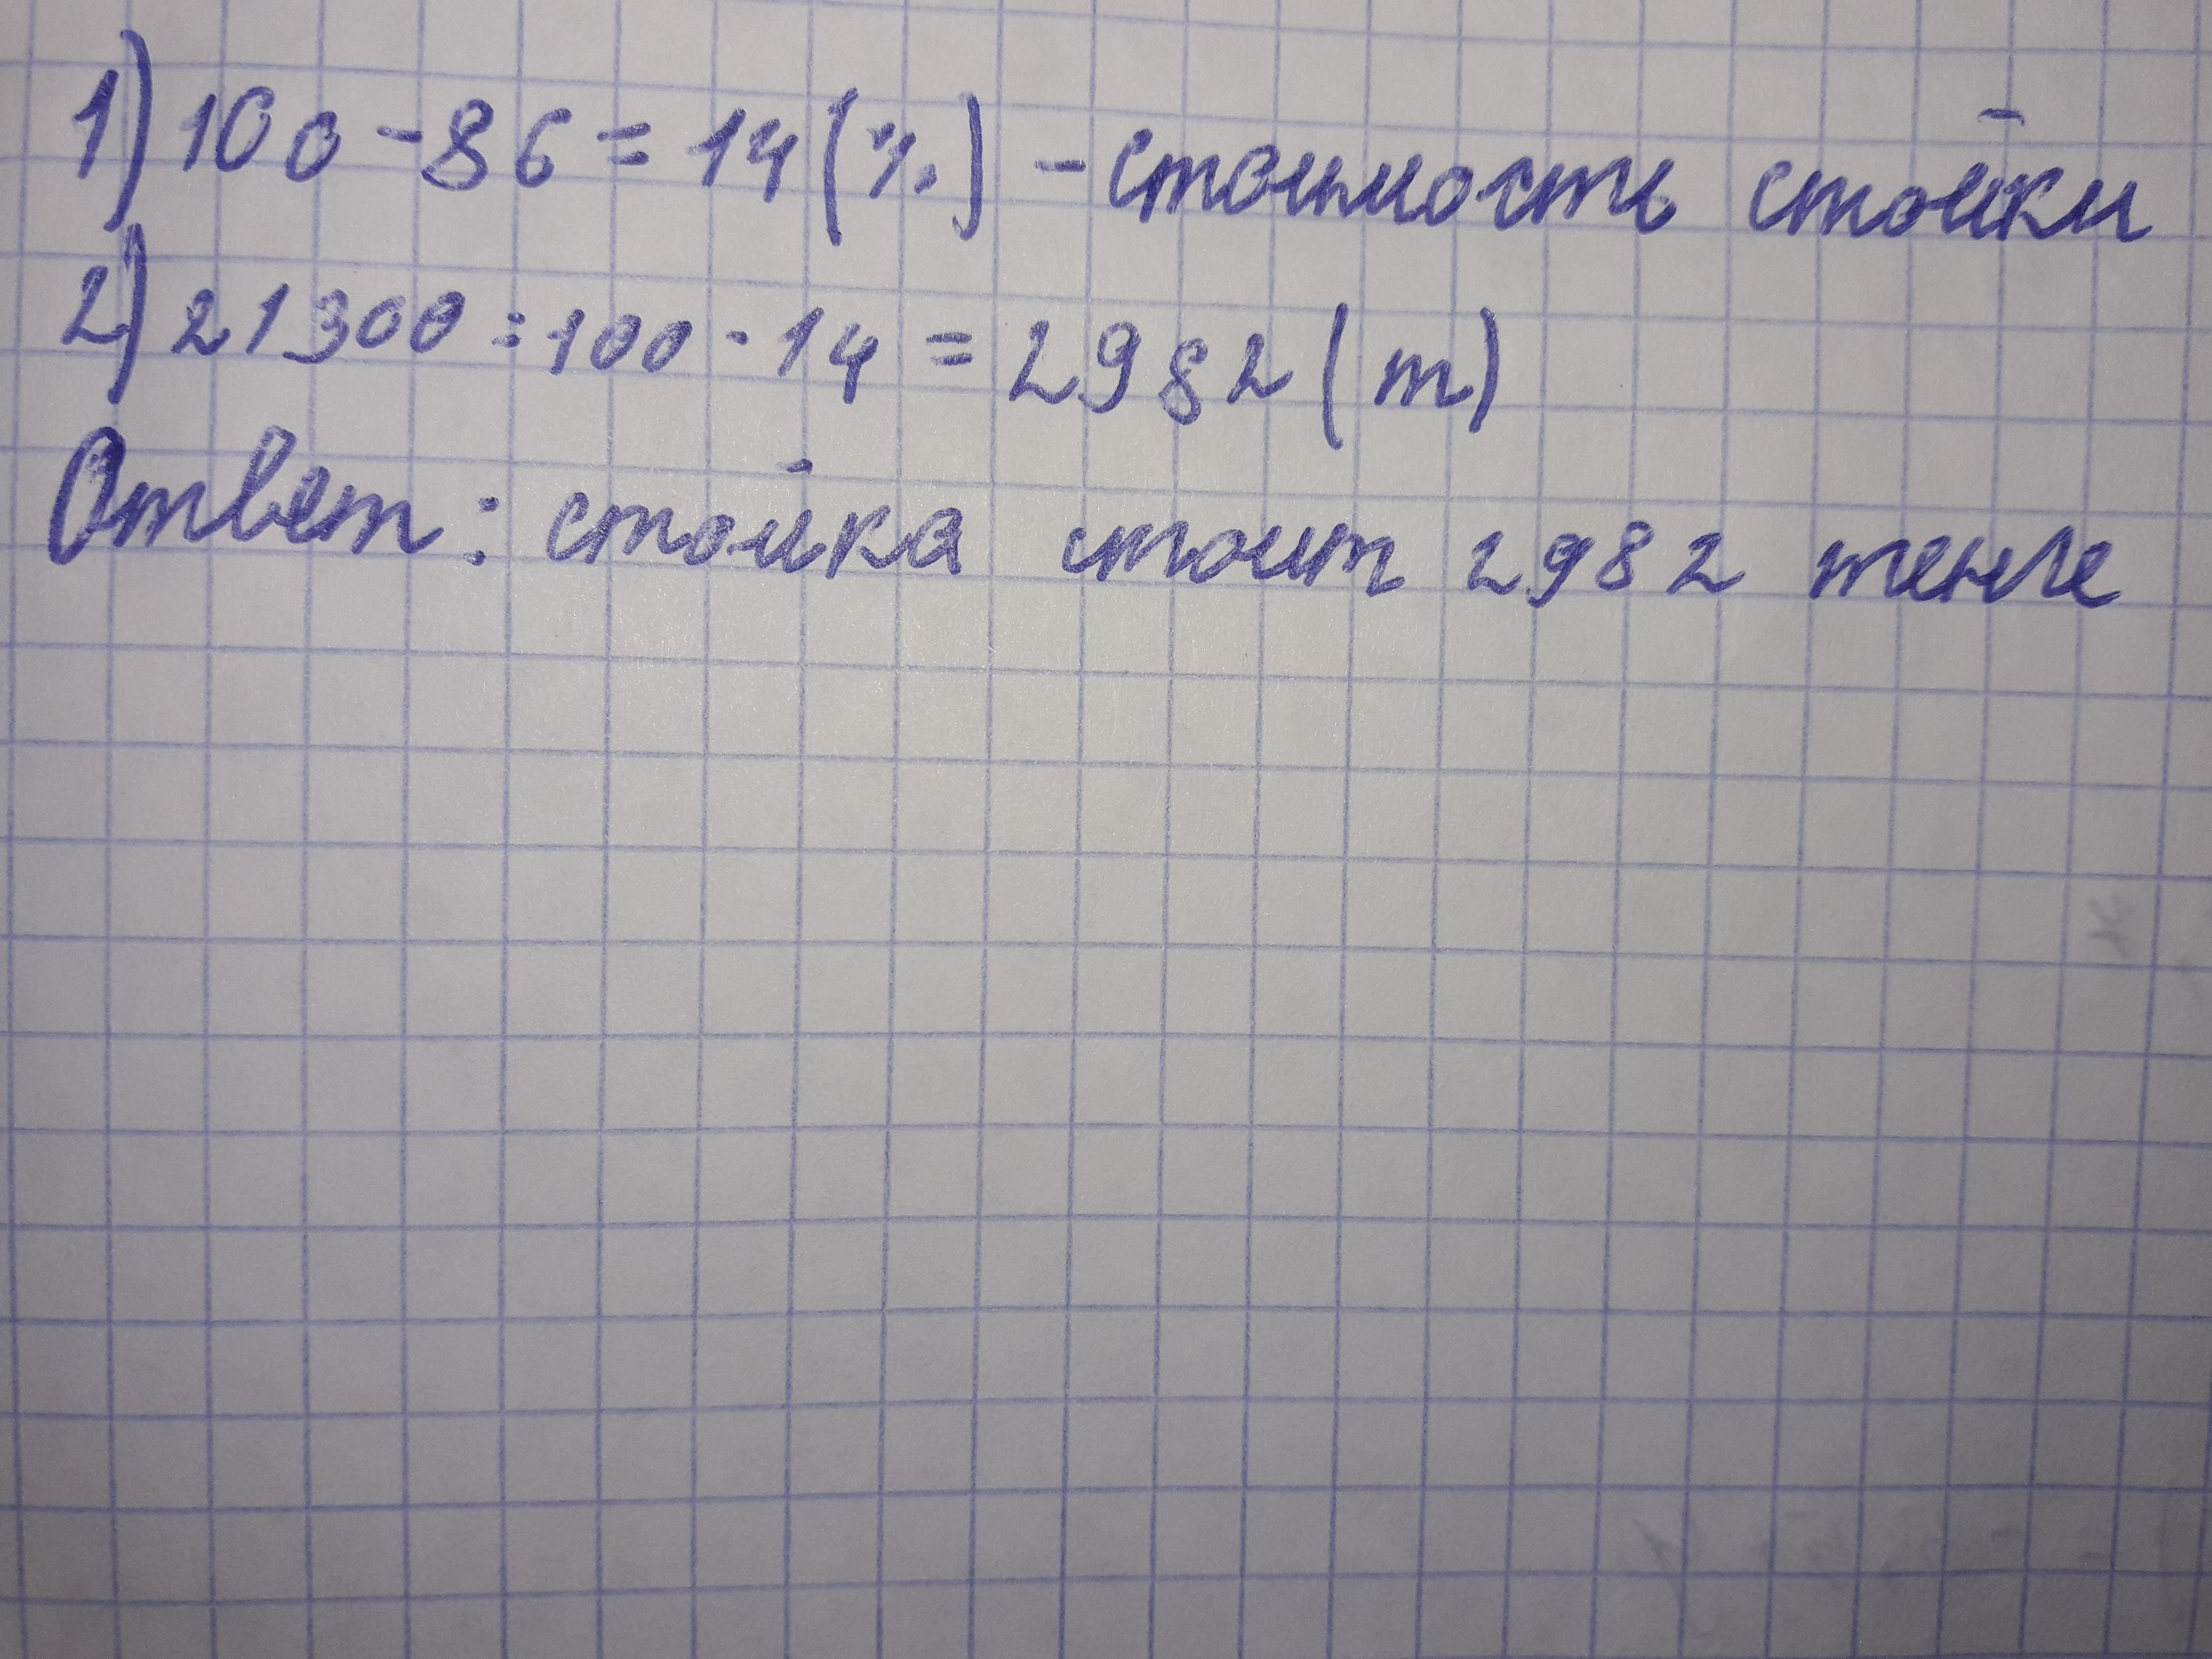 1) 100 - 86 = 14 (%) - стоимость стойки
2) 21300 : 100 · 14 = 2982 (т)
Ответ: стойка стоит 2982 тенге